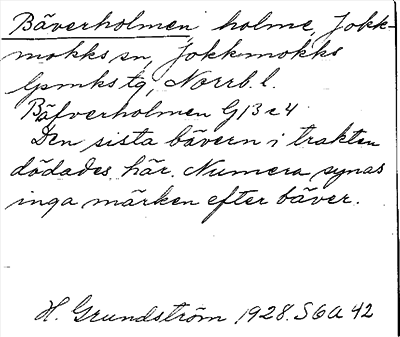 Bäverholmen holme, Jokk-
mokks sn, Jokkmokks
lpmks tg, Norrb. l.
Bäfverholmen G 13 c 4
Den sista bävern i trakten
dödades här. Numera synas
inga märken efter bäver.
H. Grundström 1928. S 6 a 42